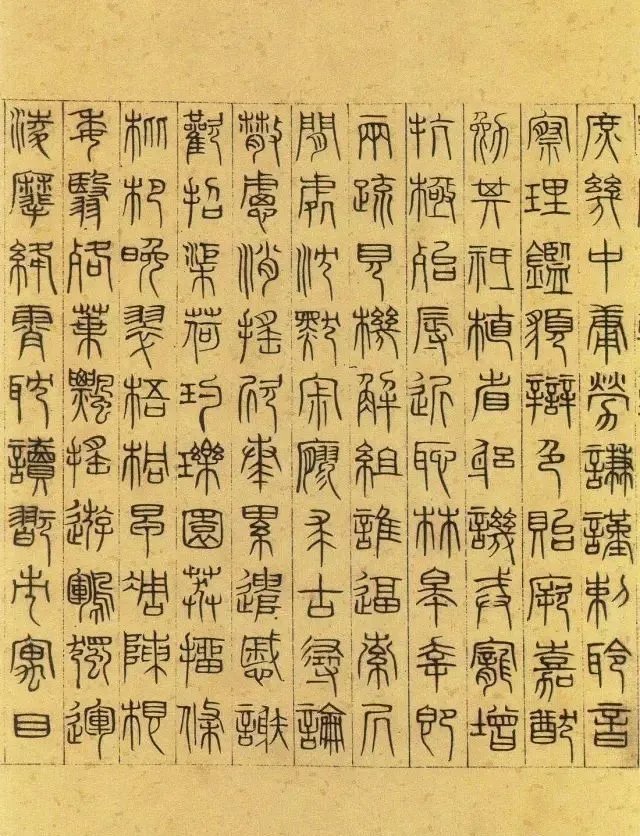 庶幾中庸勞謙謹勅聆音
察理鑑貌辯色貽厥嘉猷
勉其祗植省躬譏戒寵增
抗極殆辱近恥林皋幸即
兩疏見機解組誰逼索居
閒處沈默寂寥求古尋論
散慮消搖欣奏累遣慼謝
歡招渠荷玓瓅園莽抽條
枇杷晚翠梧桐早凋陳根
委翳落葉飄搖遊鵾獨運
凌摩絳霄耽讀翫市寓目